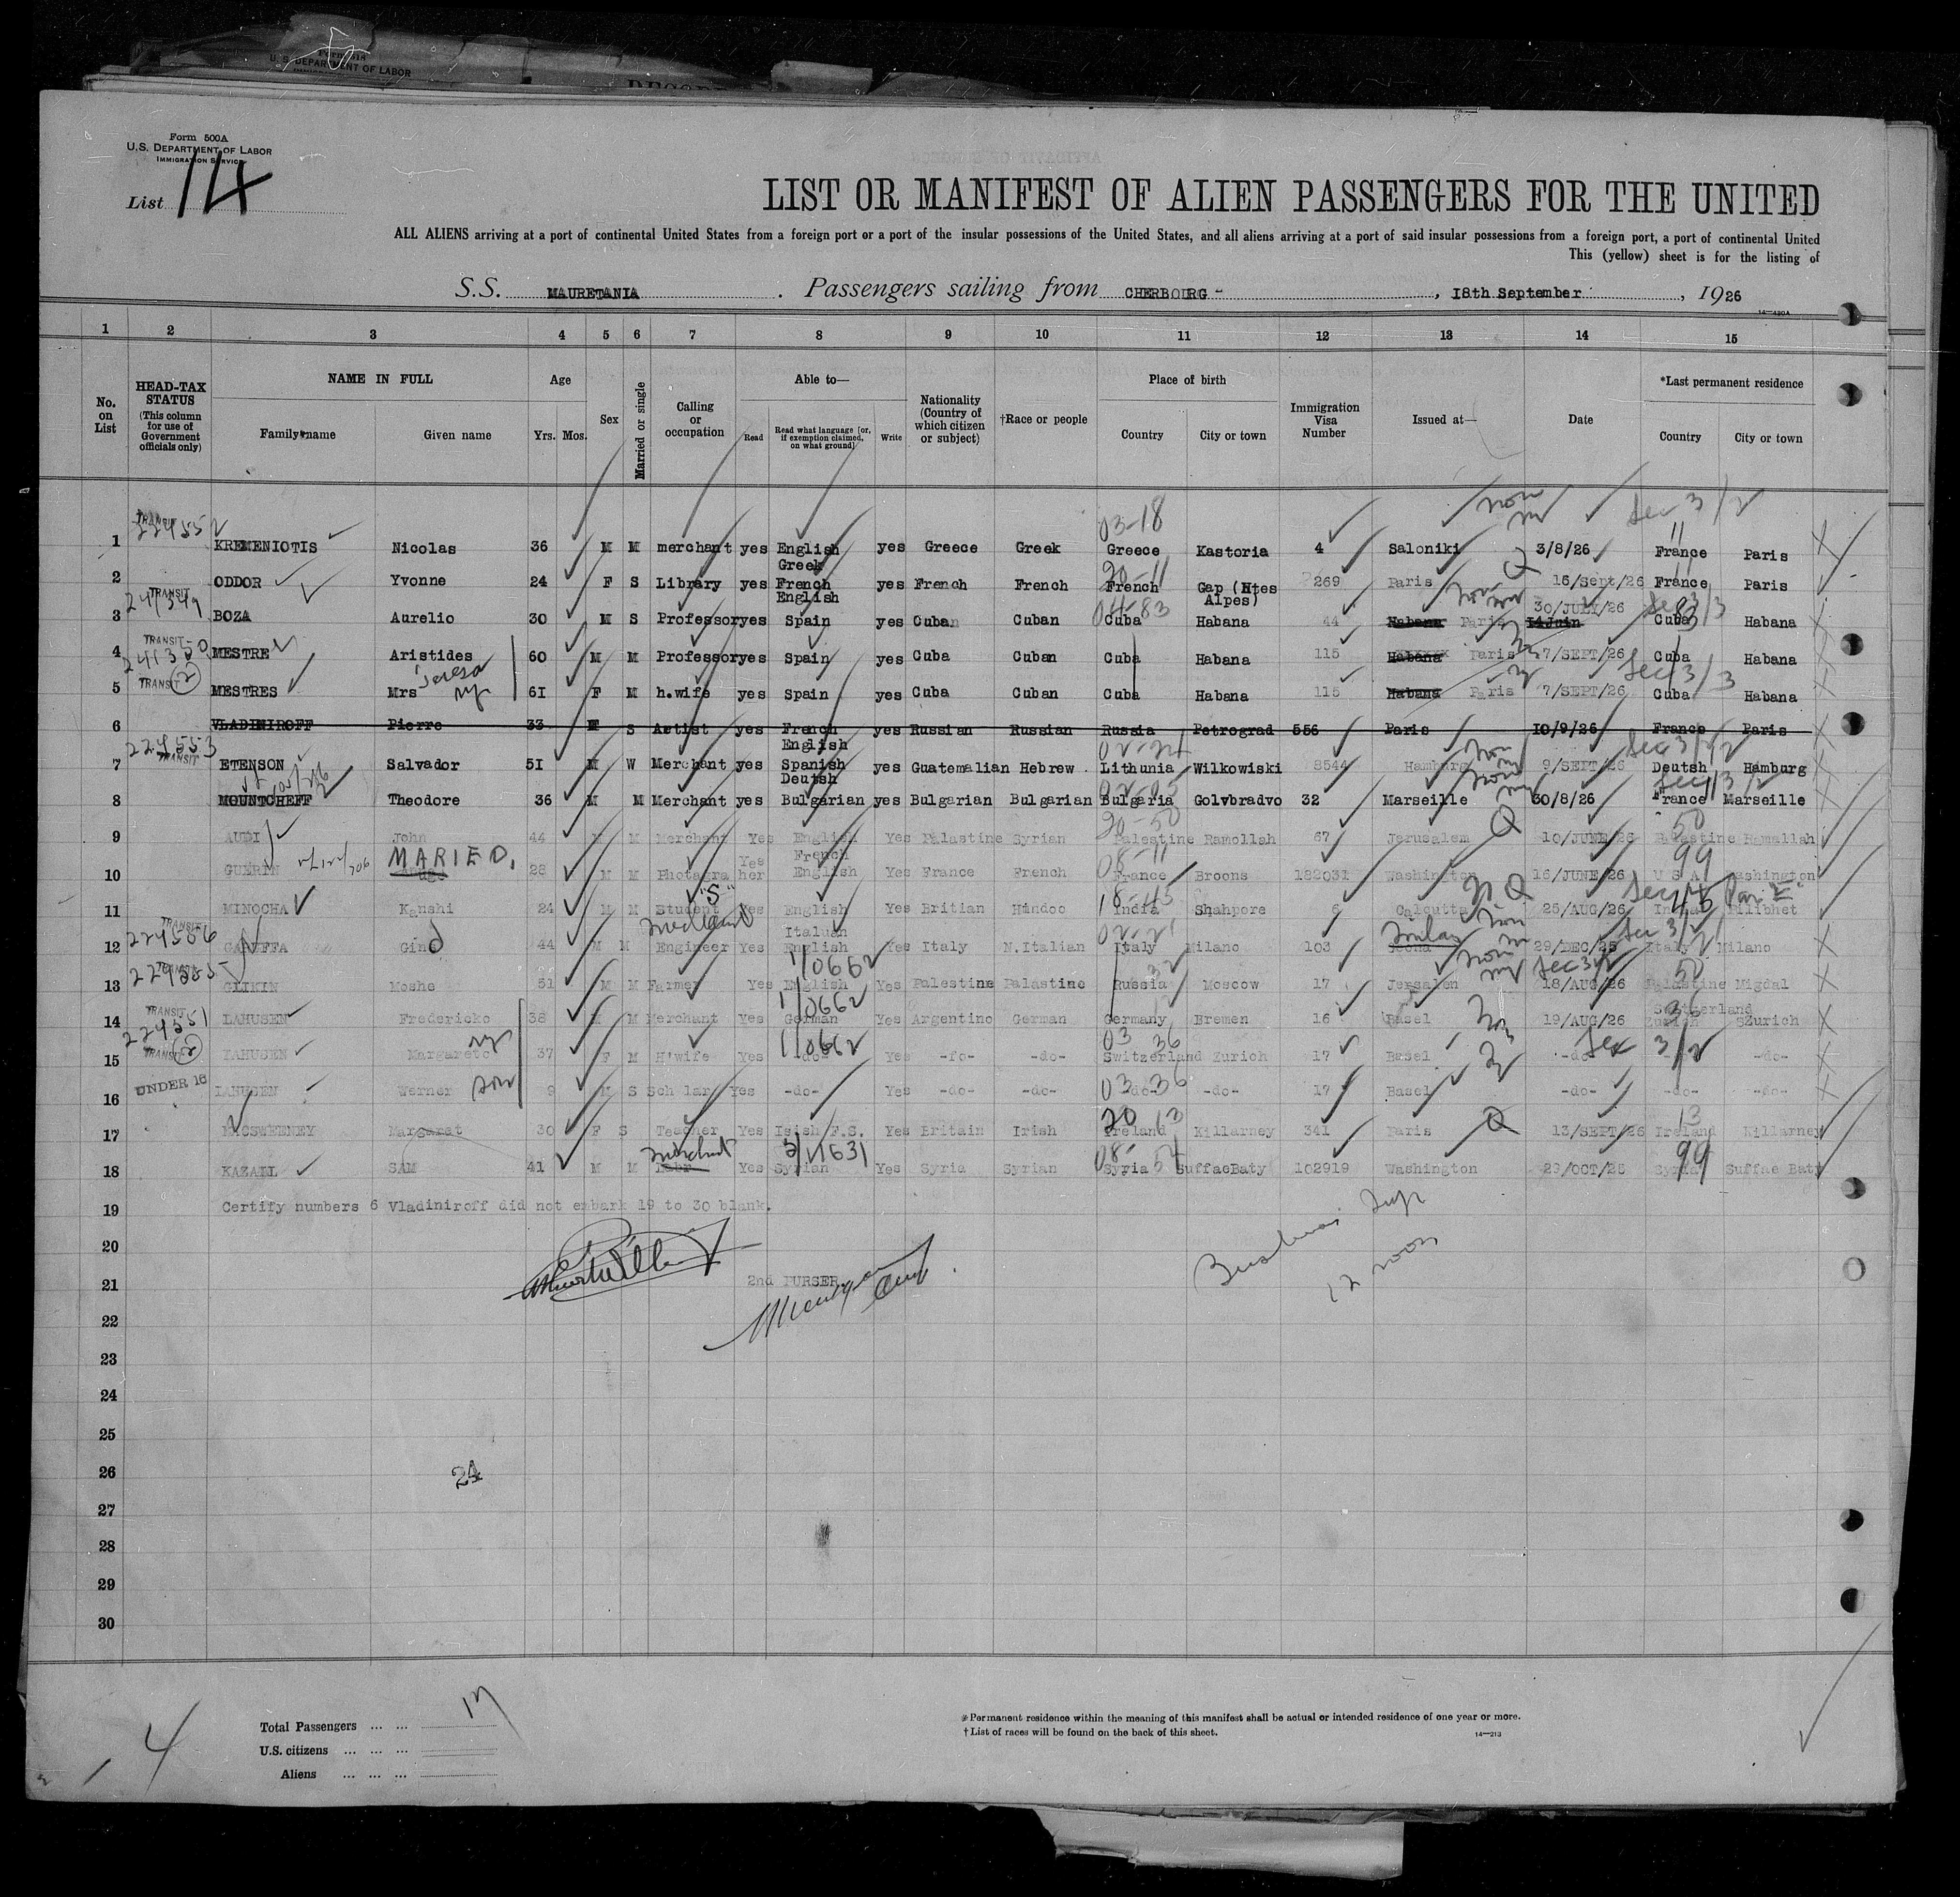 U. S. DEPARTMENT OF LABOR
Form 500A
U.S. DEPARTMENT OF LABOR
IMMIGRATION SERVICE
List 14
LIST OR MANIFEST OF ALIEN PASSENGERS FOR THE UNITED
ALL ALIENS arriving at a port of continental United States from a foreign port or a port of the insular possessions of the United States, and all aliens arriving at a port of said insular possessions from a foreign port, a port of continental United
This (yellow) sheet is for the listing of
S.S. MAURETANIA . Passengers sailing from CHERBOURG - , 18th September , 1926
14—420A
1 2 3 4 5 6 7 8 9 10 11 12 13 14 15
No. on List
HEAD-TAX STATUS (This column for use of Government officials only)
NAME IN FULL
Family name Given name
Age
Yrs. Mos.
Sex
Married or single
Calling or occupation
Able to—
Read Read what language [or, if exemption claimed, on what ground] Write
Nationality (Country of which citizen or subject)
†Race or people
Place of birth
Country City or town
Immigration Visa Number
Issued at—
Date
*Last permanent residence
Country City or town
03-18 Sec 3/2
1 TRANSIT KREMENIOTIS Nicolas 36 M M merchant yes English Greek yes Greece Greek Greece Kastoria 4 Saloniki 3/8/26 France Paris
2 ODDOR Yvonne 24 F S Library yes French English yes French French 20-11 French Gap (Htes Alpes) 269 Paris Q 16/Sept/26 France Paris
3 TRANSIT 241349 BOZA Aurelio 30 M S Professor yes Spain yes Cuban Cuban 04-83 Cuba Habana 44 Habana Paris 30/JULY/26 14Juin Cuba Habana
4 TRANSIT 241350 MESTRE Aristides 60 M M Professor yes Spain yes Cuba Cuban Cuba Habana 115 Habana Paris 7/SEPT/26 Cuba Habana
5 TRANSIT 2 MESTRES Mrs Teresa 61 F M h.wife yes Spain yes Cuba Cuban Cuba Habana 115 Habana Paris 7/SEPT/26 Sec 3/3 Cuba Habana
6 VLADINIROFF Pierre 33 M S Artist yes French English yes Russian Russian Russia Petrograd 556 Paris 10/9/26 France Paris
7 224553 TRANSIT ETENSON Salvador 51 M W Merchant yes Spanish Deutsh yes Guatemalian Hebrew Lithunia Wilkowiski 8544 Hamburg 9/SEPT/26 Deutsh Hamburg
8 MOUNTCHEFF Theodore 36 M M Merchant yes Bulgarian yes Bulgarian Bulgarian Bulgaria Golvbradvo 32 Marseille 30/8/26 France Marseille
9 AUDI John 44 M M Merchant Yes English Yes Palastine Syrian 20-50 Palestine Ramollah 67 Jerusalem Q 10/JUNE/26 50 Palastine Ramallah
10 GUERIN MARIE D. 28 M M Photographer Yes French English Yes France French 08-11 France Broons 182031 Washington 16/JUNE/26 99 U S A Washington
11 MINOCHA Kanshi 24 M M Student "S" Yes English Yes Britian Hindoo 18-45 India Shahpore 6 Calcutta 25/AUG/26 India Pilibhet
12 TRANSIT 224506 GARUFFA Gino 44 M M Engineer Yes Italuan English Yes Italy N.Italian Italy Milano 103 Milan 29/DEC/25 Italy Milano
13 GLIKIN Moshe 51 M M Farmer Yes English Yes Palestine Palastine Russia Moscow 17 Jersalem 18/AUG/26 50 Palastine Migdal
14 TRANSIT 224551 LAHUSEN Fredericko 38 M M Merchant Yes German Yes Argentino German Germany Bremen 16 Basel 19/AUG/26 36 Switzerland Zurich
15 TRANSIT 2 LAHUSEN Margarete 37 F M H'wife Yes -do- Yes -fo- -do- Switzerland Zurich 17 Basel -do- 3/2 -do-
16 UNDER 16 LAHUSEN Werner son 9 M S Scholar Yes -do- Yes -do- -do- 03-36 -do- -do- 17 Basel -do- -do- -do-
17 MACSWEENEY Margarat 30 F S Teacher Yes Isish F.S. Yes Britain Irish 20 13 Ireland Killarney 341 Paris Q 13/SEPT/26 13 Ireland Killarney
18 KAZAIL SAM 41 M M Merchant Yes Syrian Yes Syria Syrian Syria SuffaeBaty 102919 Washington 29/OCT/25 99 Syria Suffae Baty
19 Certify numbers 6 Vladiniroff did not embark 19 to 30 blank.
20
21 2nd PURSER.
12 noon
22
23
24
25
26 24
27
28
29
30
4
Total Passengers ... ... 17
U.S. citizens ... ... ...
Aliens ... ... ...
*Permanent residence within the meaning of this manifest shall be actual or intended residence of one year or more.
†List of races will be found on the back of this sheet. 14—213